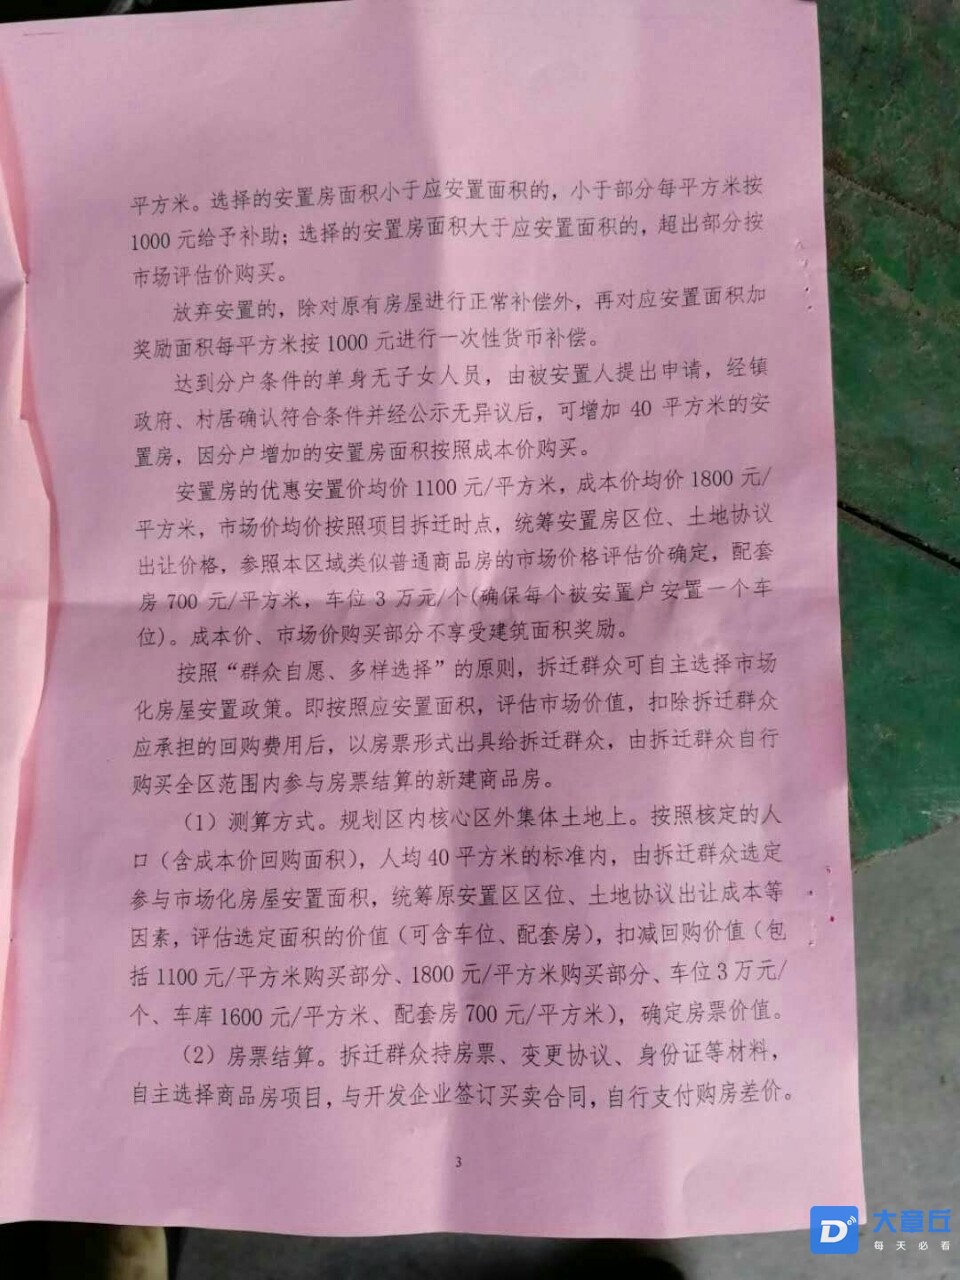 平方米。选择的安置房面积小于应安置面积的，小于部分每平方米按
1000 元给予补助；选择的安置房面积大于应安置面积的，超出部分按
市场评估价购买。
放弃安置的，除对原有房屋进行正常补偿外，再对应安置面积加
奖励面积每平方米按 1000 元进行一次性货币补偿。
达到分户条件的单身无子女人员，由被安置人提出申请，经镇
政府、村居确认符合条件并经公示无异议后，可增加 40 平方米的安
置房，因分户增加的安置房面积按照成本价购买。
安置房的优惠安置价均价 1100 元/平方米，成本价均价 1800 元/
平方米，市场价均价按照项目拆迁时点，统筹安置房区位、土地协议
出让价格，参照本区域类似普通商品房的市场价格评估价确定，配套
房 700 元/平方米，车位 3 万元/个(确保每个被安置户安置一个车
位)。成本价、市场价购买部分不享受建筑面积奖励。
按照“群众自愿、多样选择”的原则，拆迁群众可自主选择市场
化房屋安置政策。即按照应安置面积，评估市场价值，扣除拆迁群众
应承担的回购费用后，以房票形式出具给拆迁群众，由拆迁群众自行
购买全区范围内参与房票结算的新建商品房。
（1）测算方式。规划区内核心区外集体土地上。按照核定的人
口（含成本价回购面积），人均 40 平方米的标准内，由拆迁群众选定
参与市场化房屋安置面积，统筹原安置区区位、土地协议出让成本等
因素，评估选定面积的价值（可含车位、配套房），扣减回购价值（包
括 1100 元/平方米购买部分、1800 元/平方米购买部分、车位 3 万元/
个、车库 1600 元/平方米、配套房 700 元/平方米），确定房票价值。
（2）房票结算。拆迁群众持房票、变更协议、身份证等材料，
自主选择商品房项目，与开发企业签订买卖合同，自行支付购房差价。
3
大章丘
每天必看